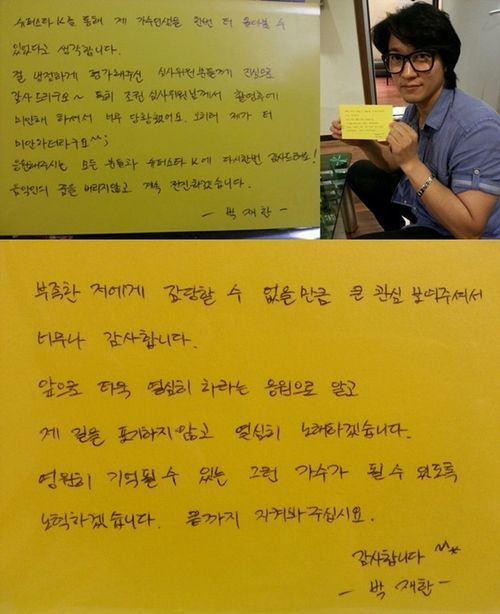 슈퍼스타 K를 통해 제 가수인생을 한번 더 돌아볼 수
있었다고 생각합니다.
절 냉정하게 평가해주신 심사위원분들께 진심으로
감사드리구요~ 특히 조권 심사위원님께서 촬영후에
미안해 하셔서 너무 당황했어요. 오히려 제가 더
미안하더라구요^^;
응원해주시는 모든 분들과 슈퍼스타 K에 다시한번 감사드려요!
음악인의 꿈을 버리지않고 계속 전진하겠습니다.
- 박재한 -
부족한 저에게 감당할 수 없을만큼 큰 관심 보여주셔서
너무나 감사합니다.
앞으로 더욱 열심히 하라는 응원으로 알고
제 길을 포기하지않고 열심히 노래하겠습니다.
영원히 기억될 수 있는 그런 가수가 될 수 있도록
노력하겠습니다. 끝까지 지켜봐주십시요.
감사합니다 ^^*
- 박재한 -